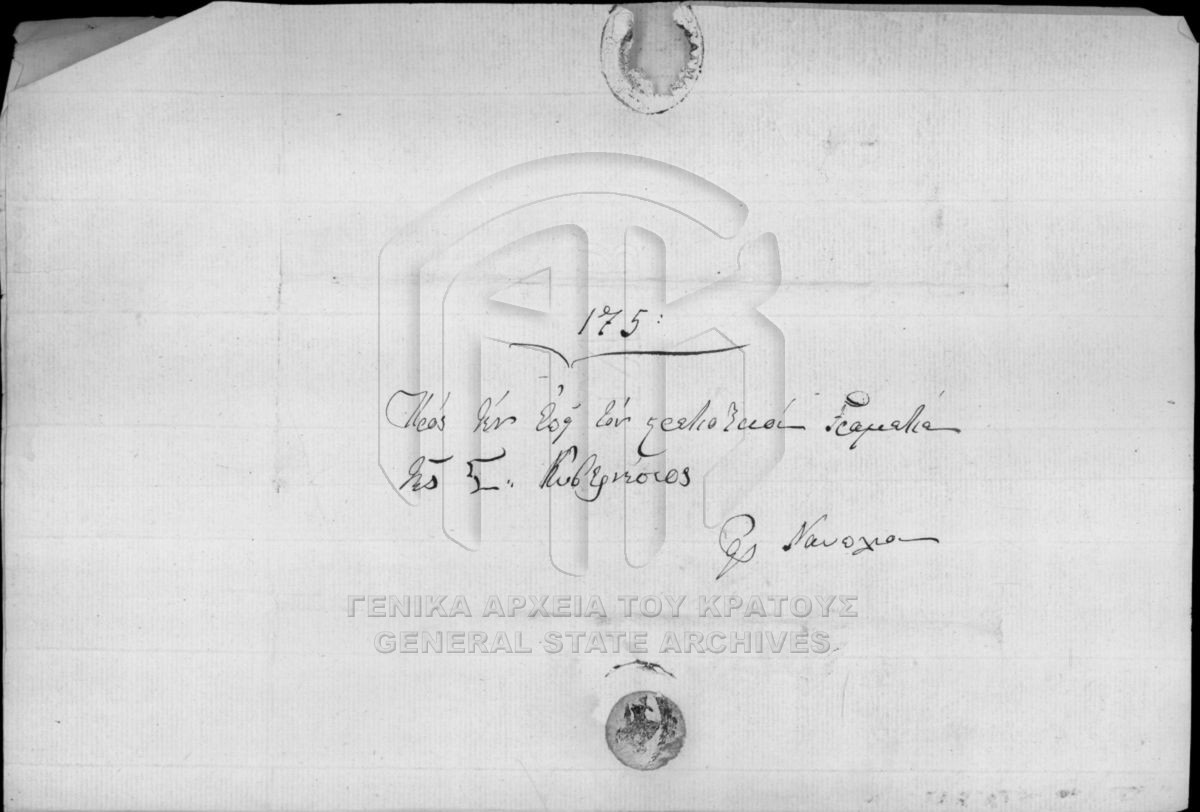 175:
Πρός τήν ἐπί τόν Γραματία
τῆς Σ.. Κυβερνίσεος
Εἰς Ναυπλια
ΓΕΝΙΚΑ ΑΡΧΕΙΑ ΤΟΥ ΚΡΑΤΟΥΣ
GENERAL STATE ARCHIVES